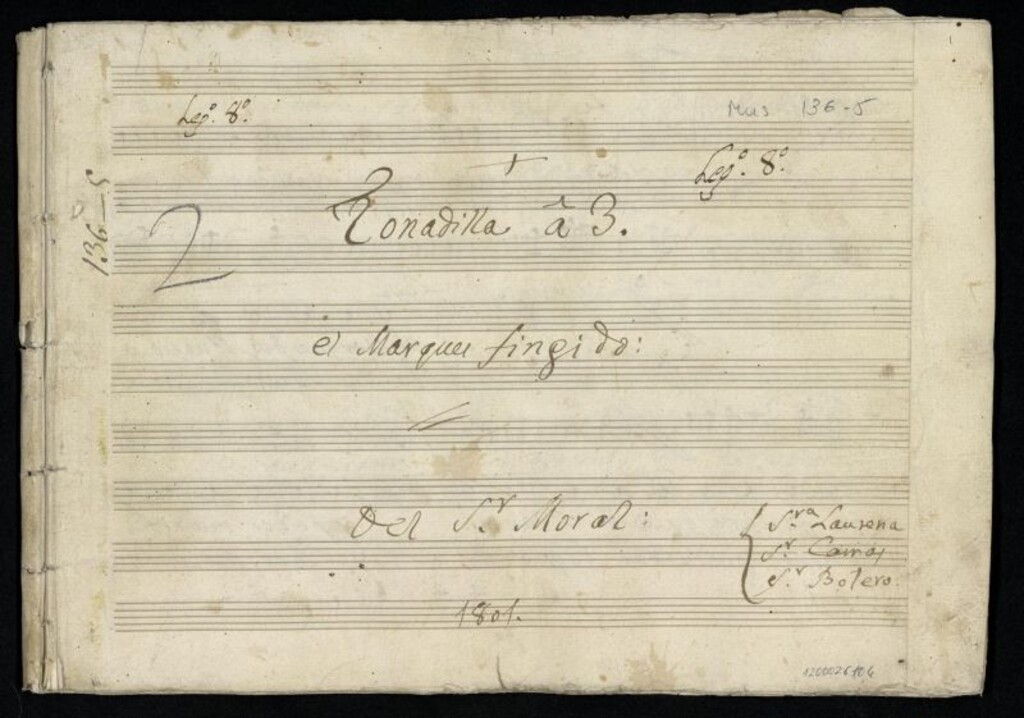 Mus 136-5
Leg.º 8.º
Leg.º 8.º
136-5
2
Tonadilla â 3.
el Marques fingido:
Del S.r Moral:
S.ra Laurena
S.r Camas
S.r Bolero.
1801.